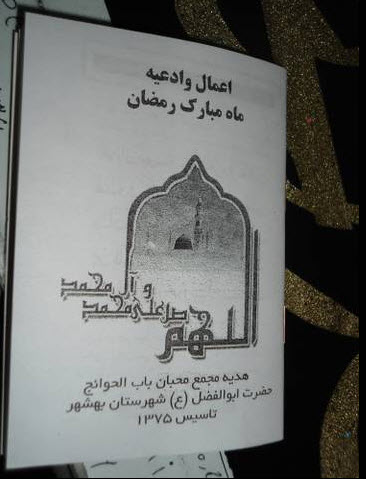 اعمال وادعیه
ماه مبارک رمضان
اللهم صل علی محمد
و آل محمد
هدیه مجمع محبان باب الحوائج
حضرت ابوالفضل (ع) شهرستان بهشهر
تاسیس ۱۳۷۵